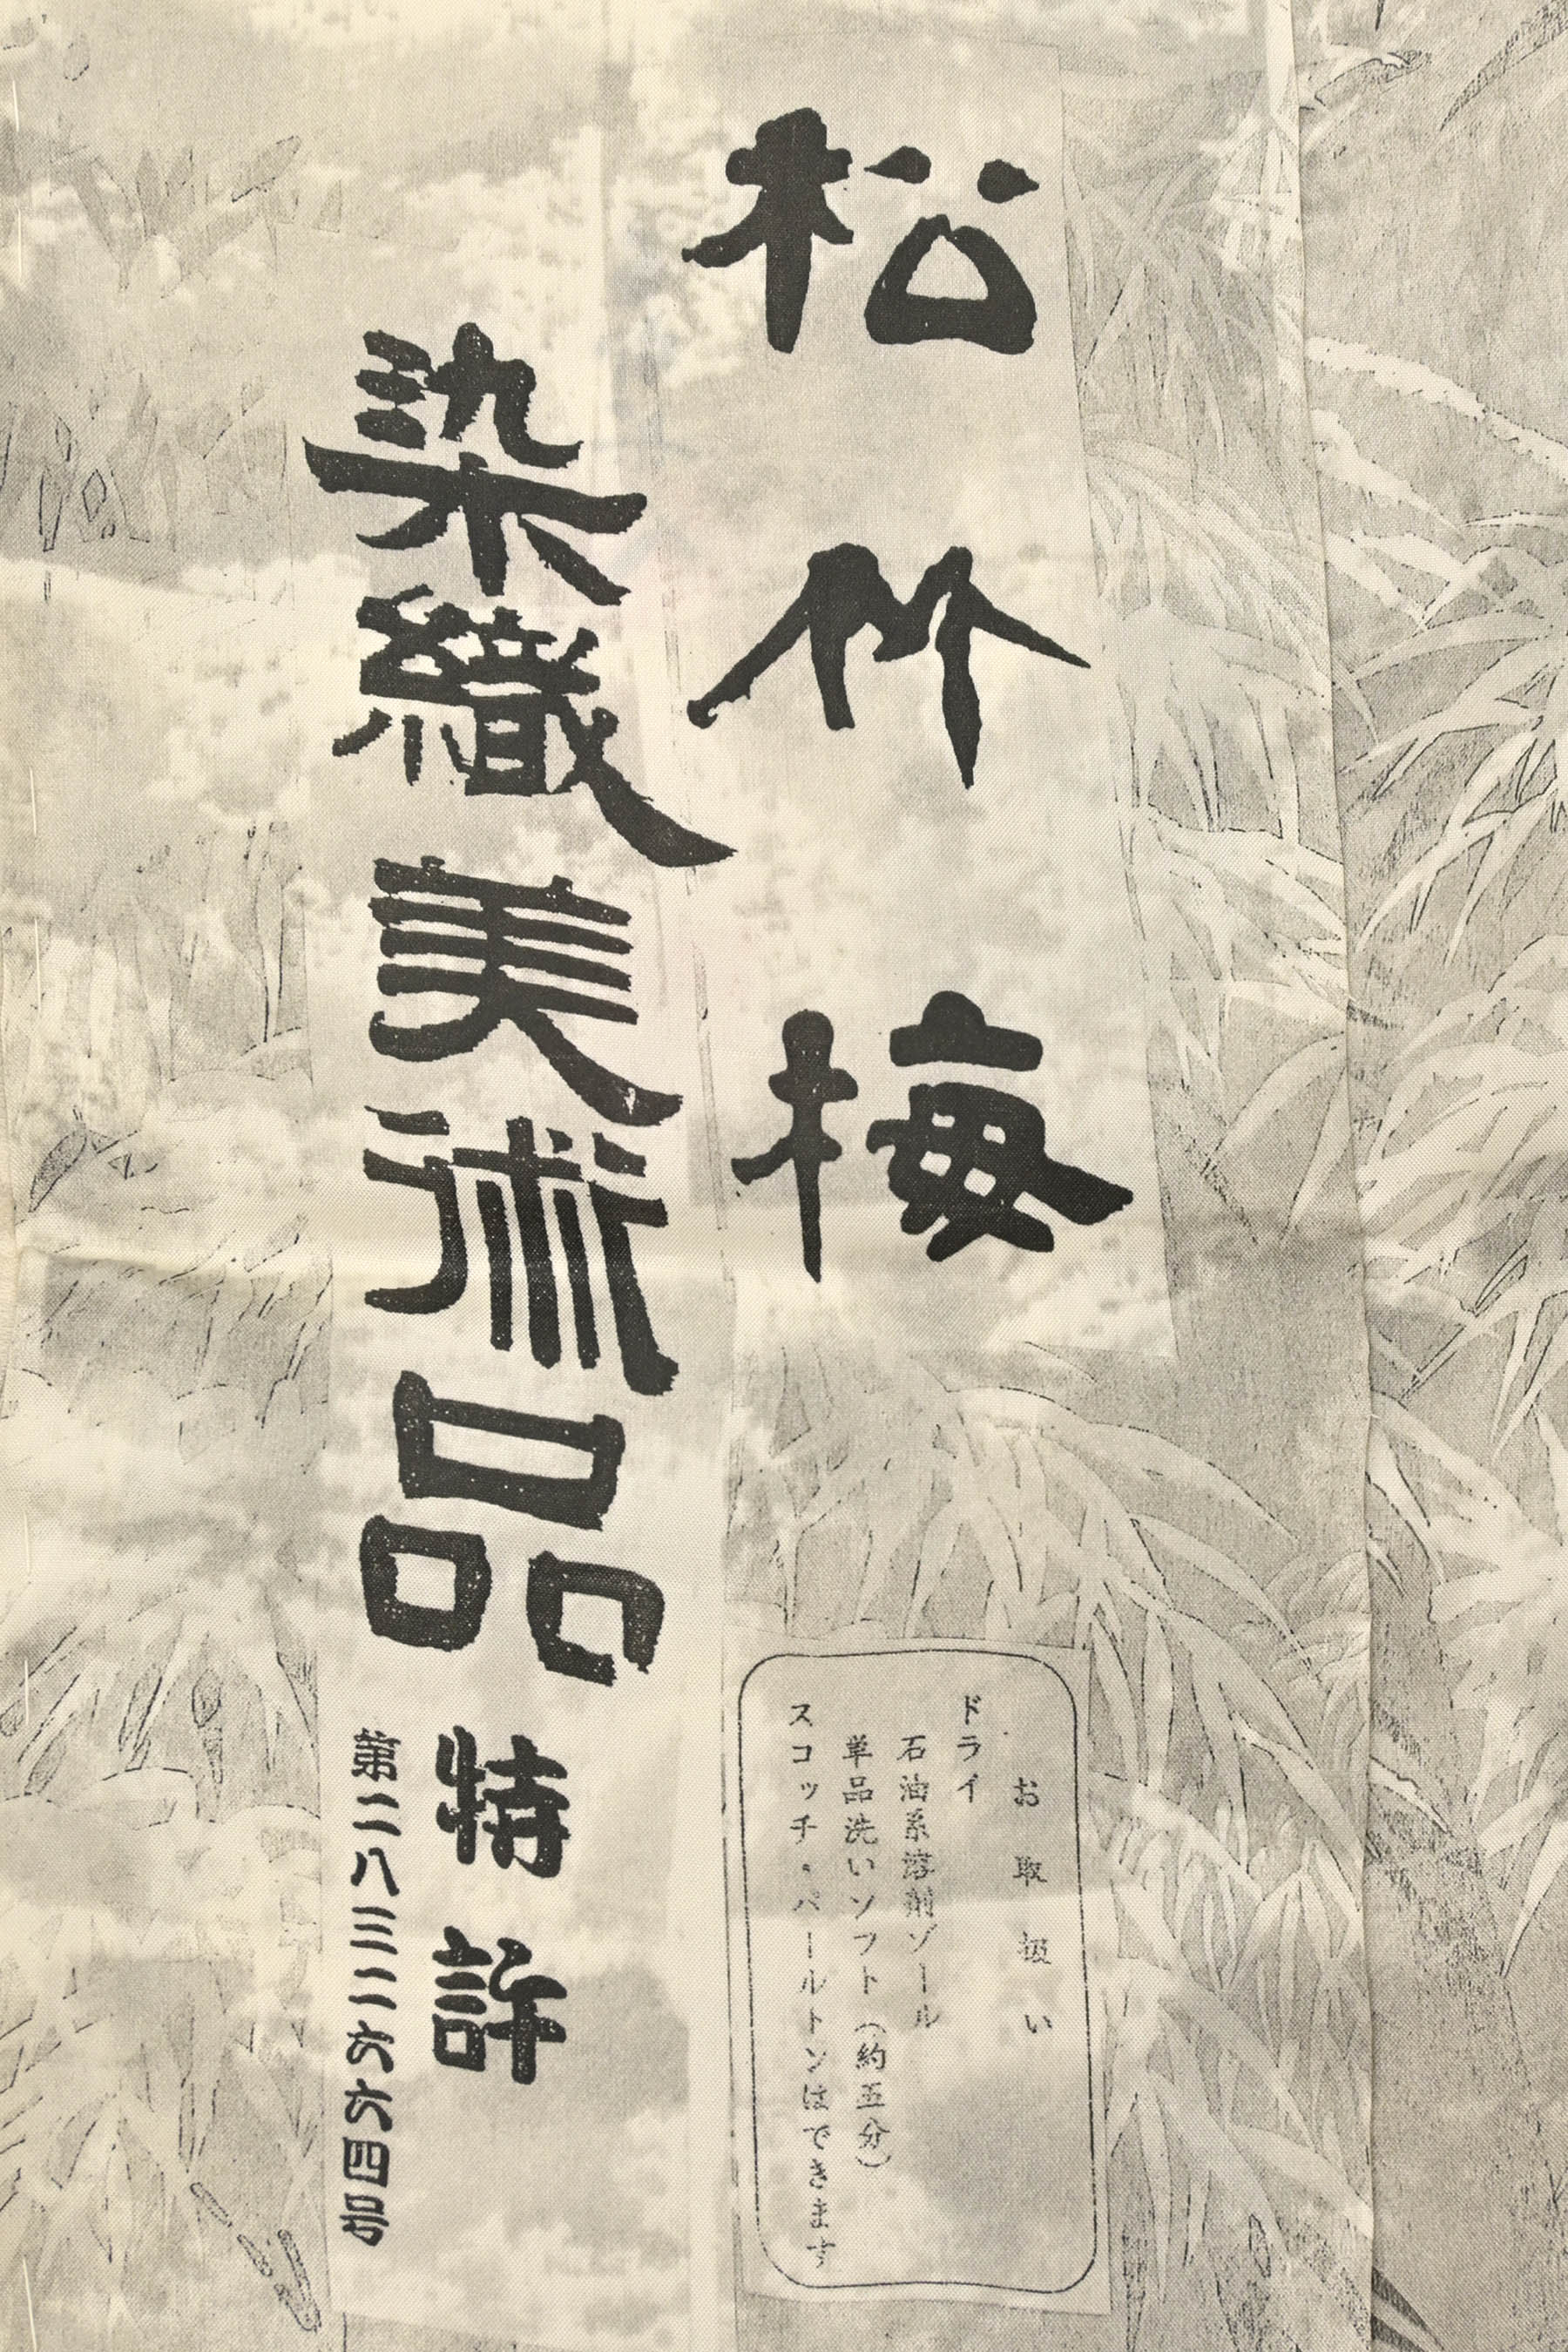 松竹梅
染織美術品
特許
第二八三二六六四号
お取扱い
ドライ
石油系溶剤ゾール
単品洗いソフト（約五分）
スコッチ・パールトンはできます